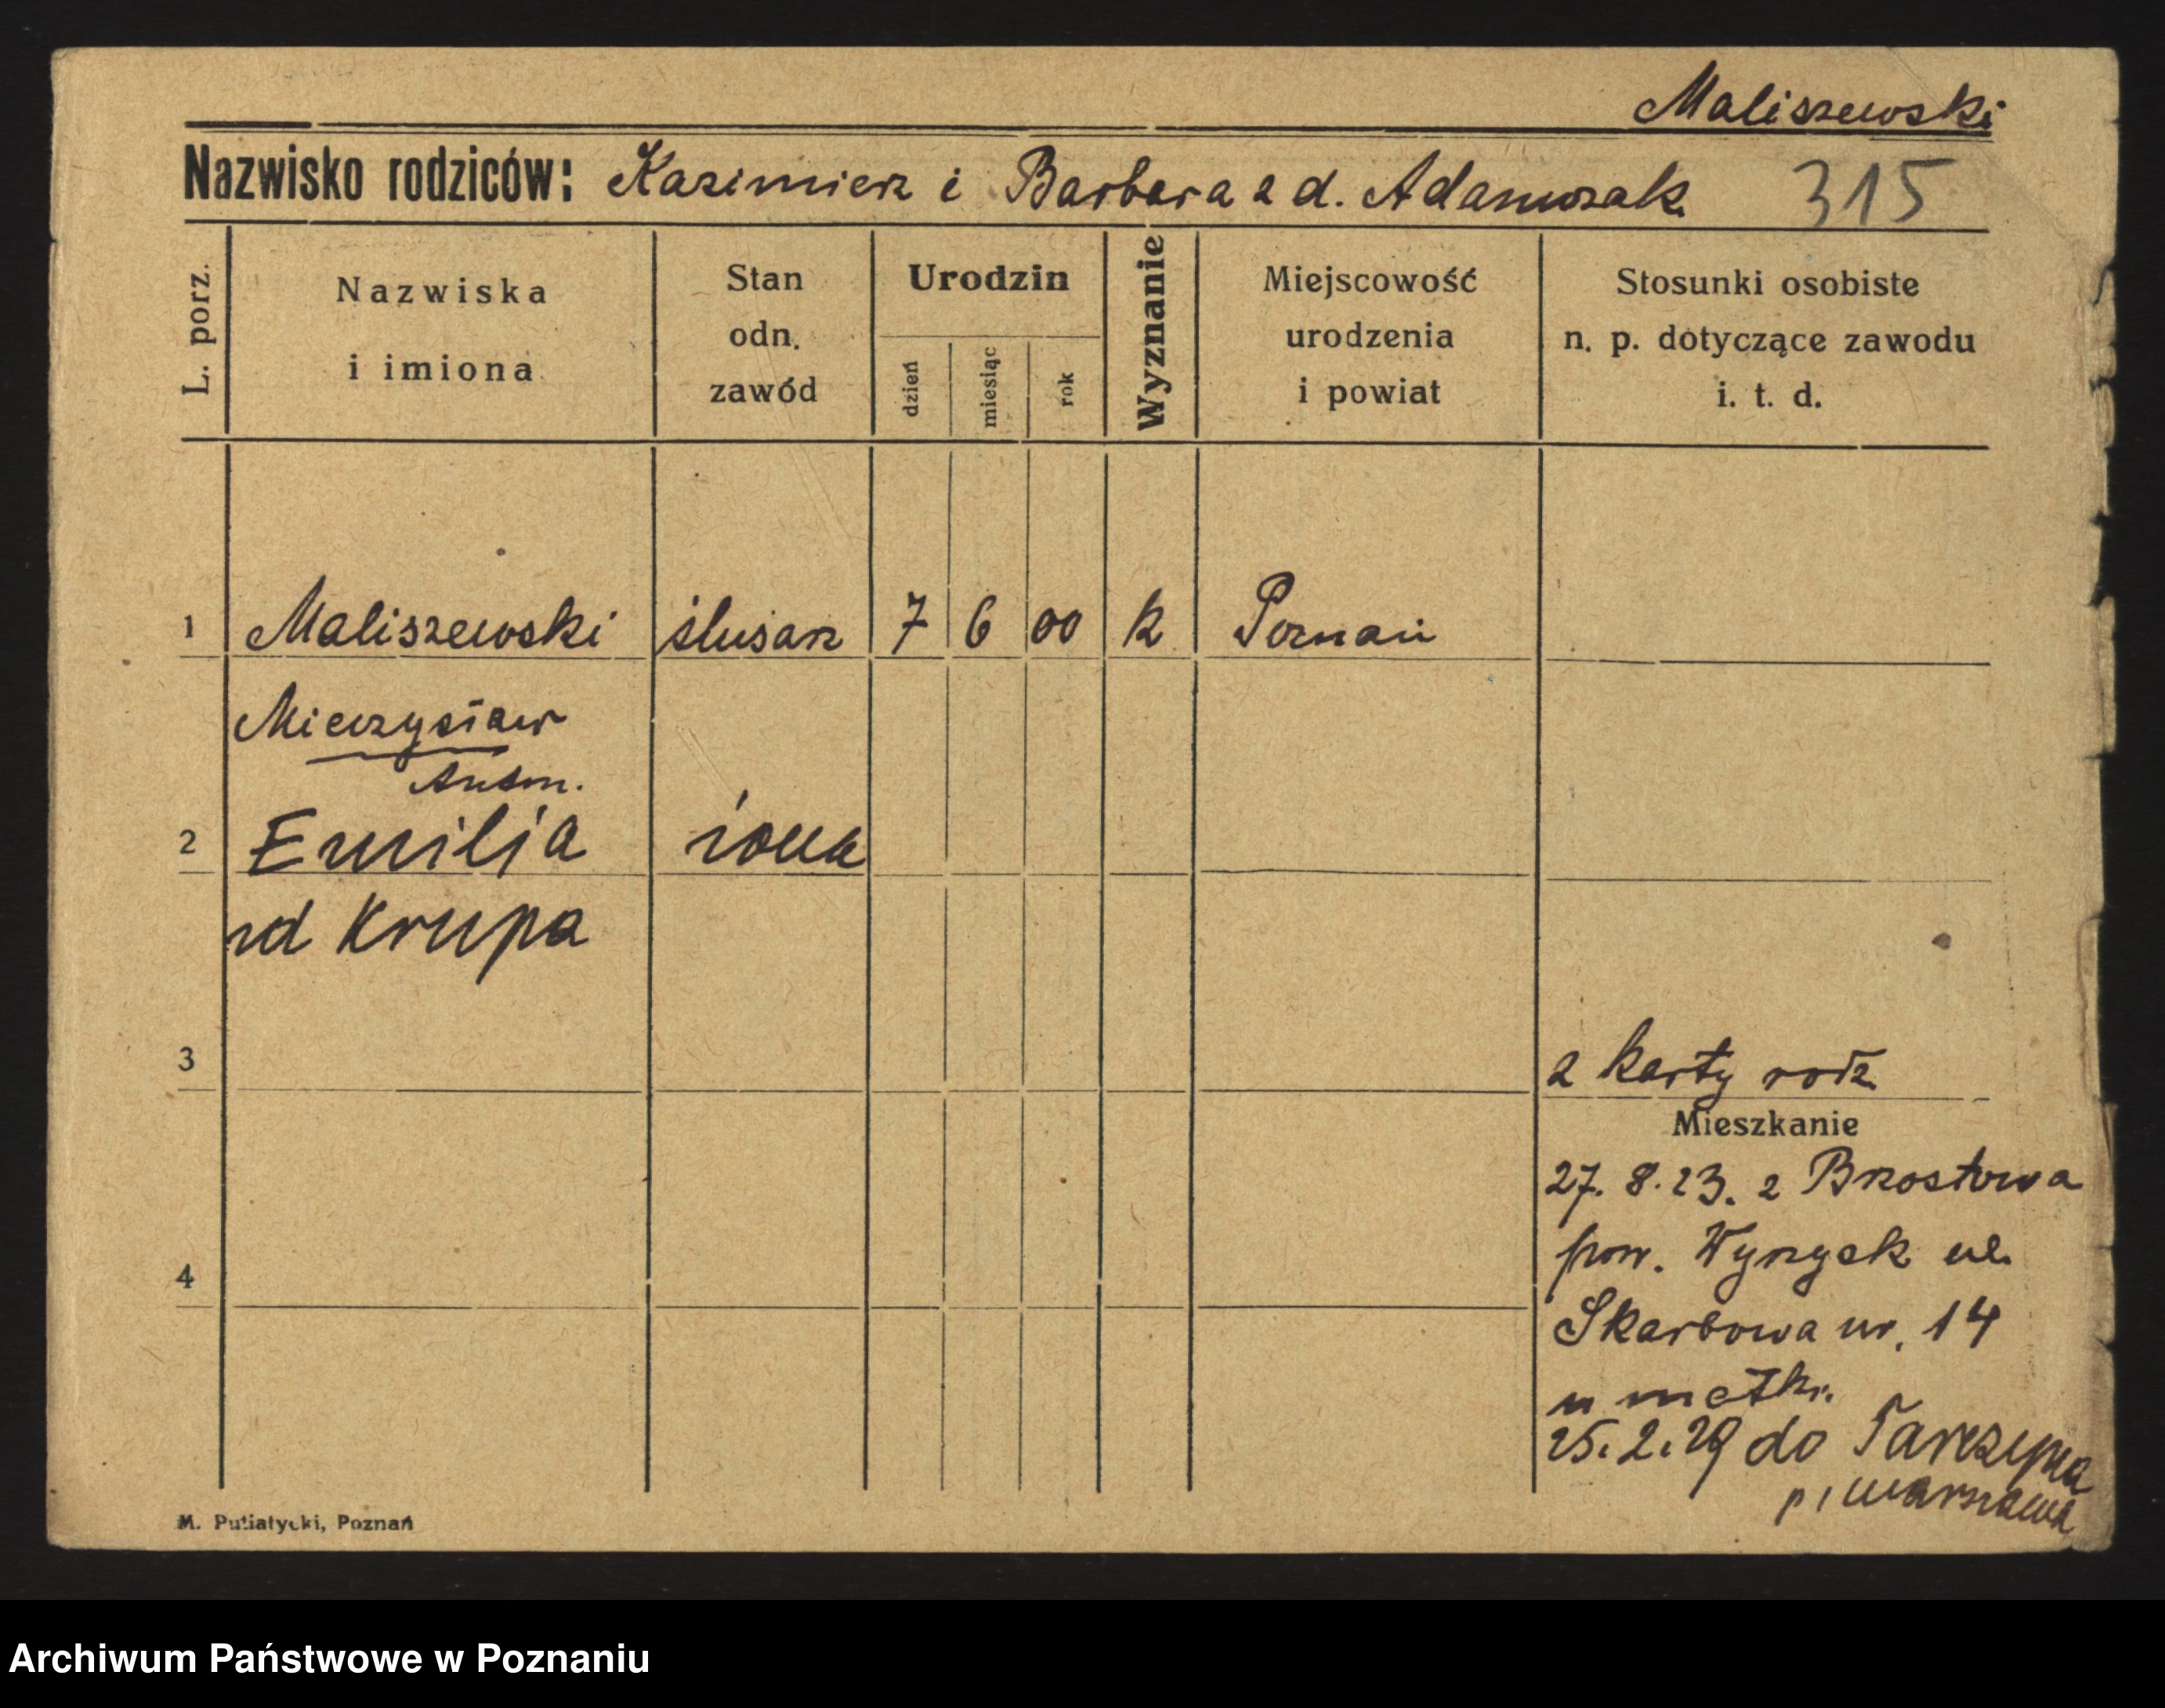 Maliszewski
Nazwisko rodziców: Kazimierz i Barbara z d. Adamczak 315
L. porz.
Nazwiska
i imiona
Stan
odn.
zawód
Urodzin
dzień
miesiąc
rok
Wyznanie
Miejscowość
urodzenia
i powiat
Stosunki osobiste
n. p. dotyczące zawodu
i. t. d.
1 Maliszewski ślusarz 7 6 00 k Poznań
Mieczysław
Anton.
2 Emilia żona
zd Krupa
3
z karty rodz.
Mieszkanie
27. 8. 23. z Brzostowa
4
pow. Wyrzysk ul.
Skarbowa nr. 14
u matki.
25. 2. 29 do Tarczyna
p. Warszawa
M. Putiatycki, Poznań
Archiwum Państwowe w Poznaniu